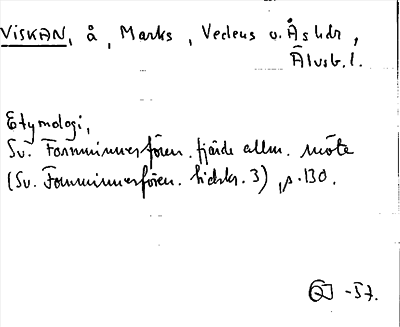 VISKAN, å, Marks, Vedens o. Ås hdr,
Älvsb. l.
Etymologi,
Sv. Fornminnesfören. fjärde allm. möte
(Sv. Fornminnesfören. tidskr. 3), s. 130.
-57.